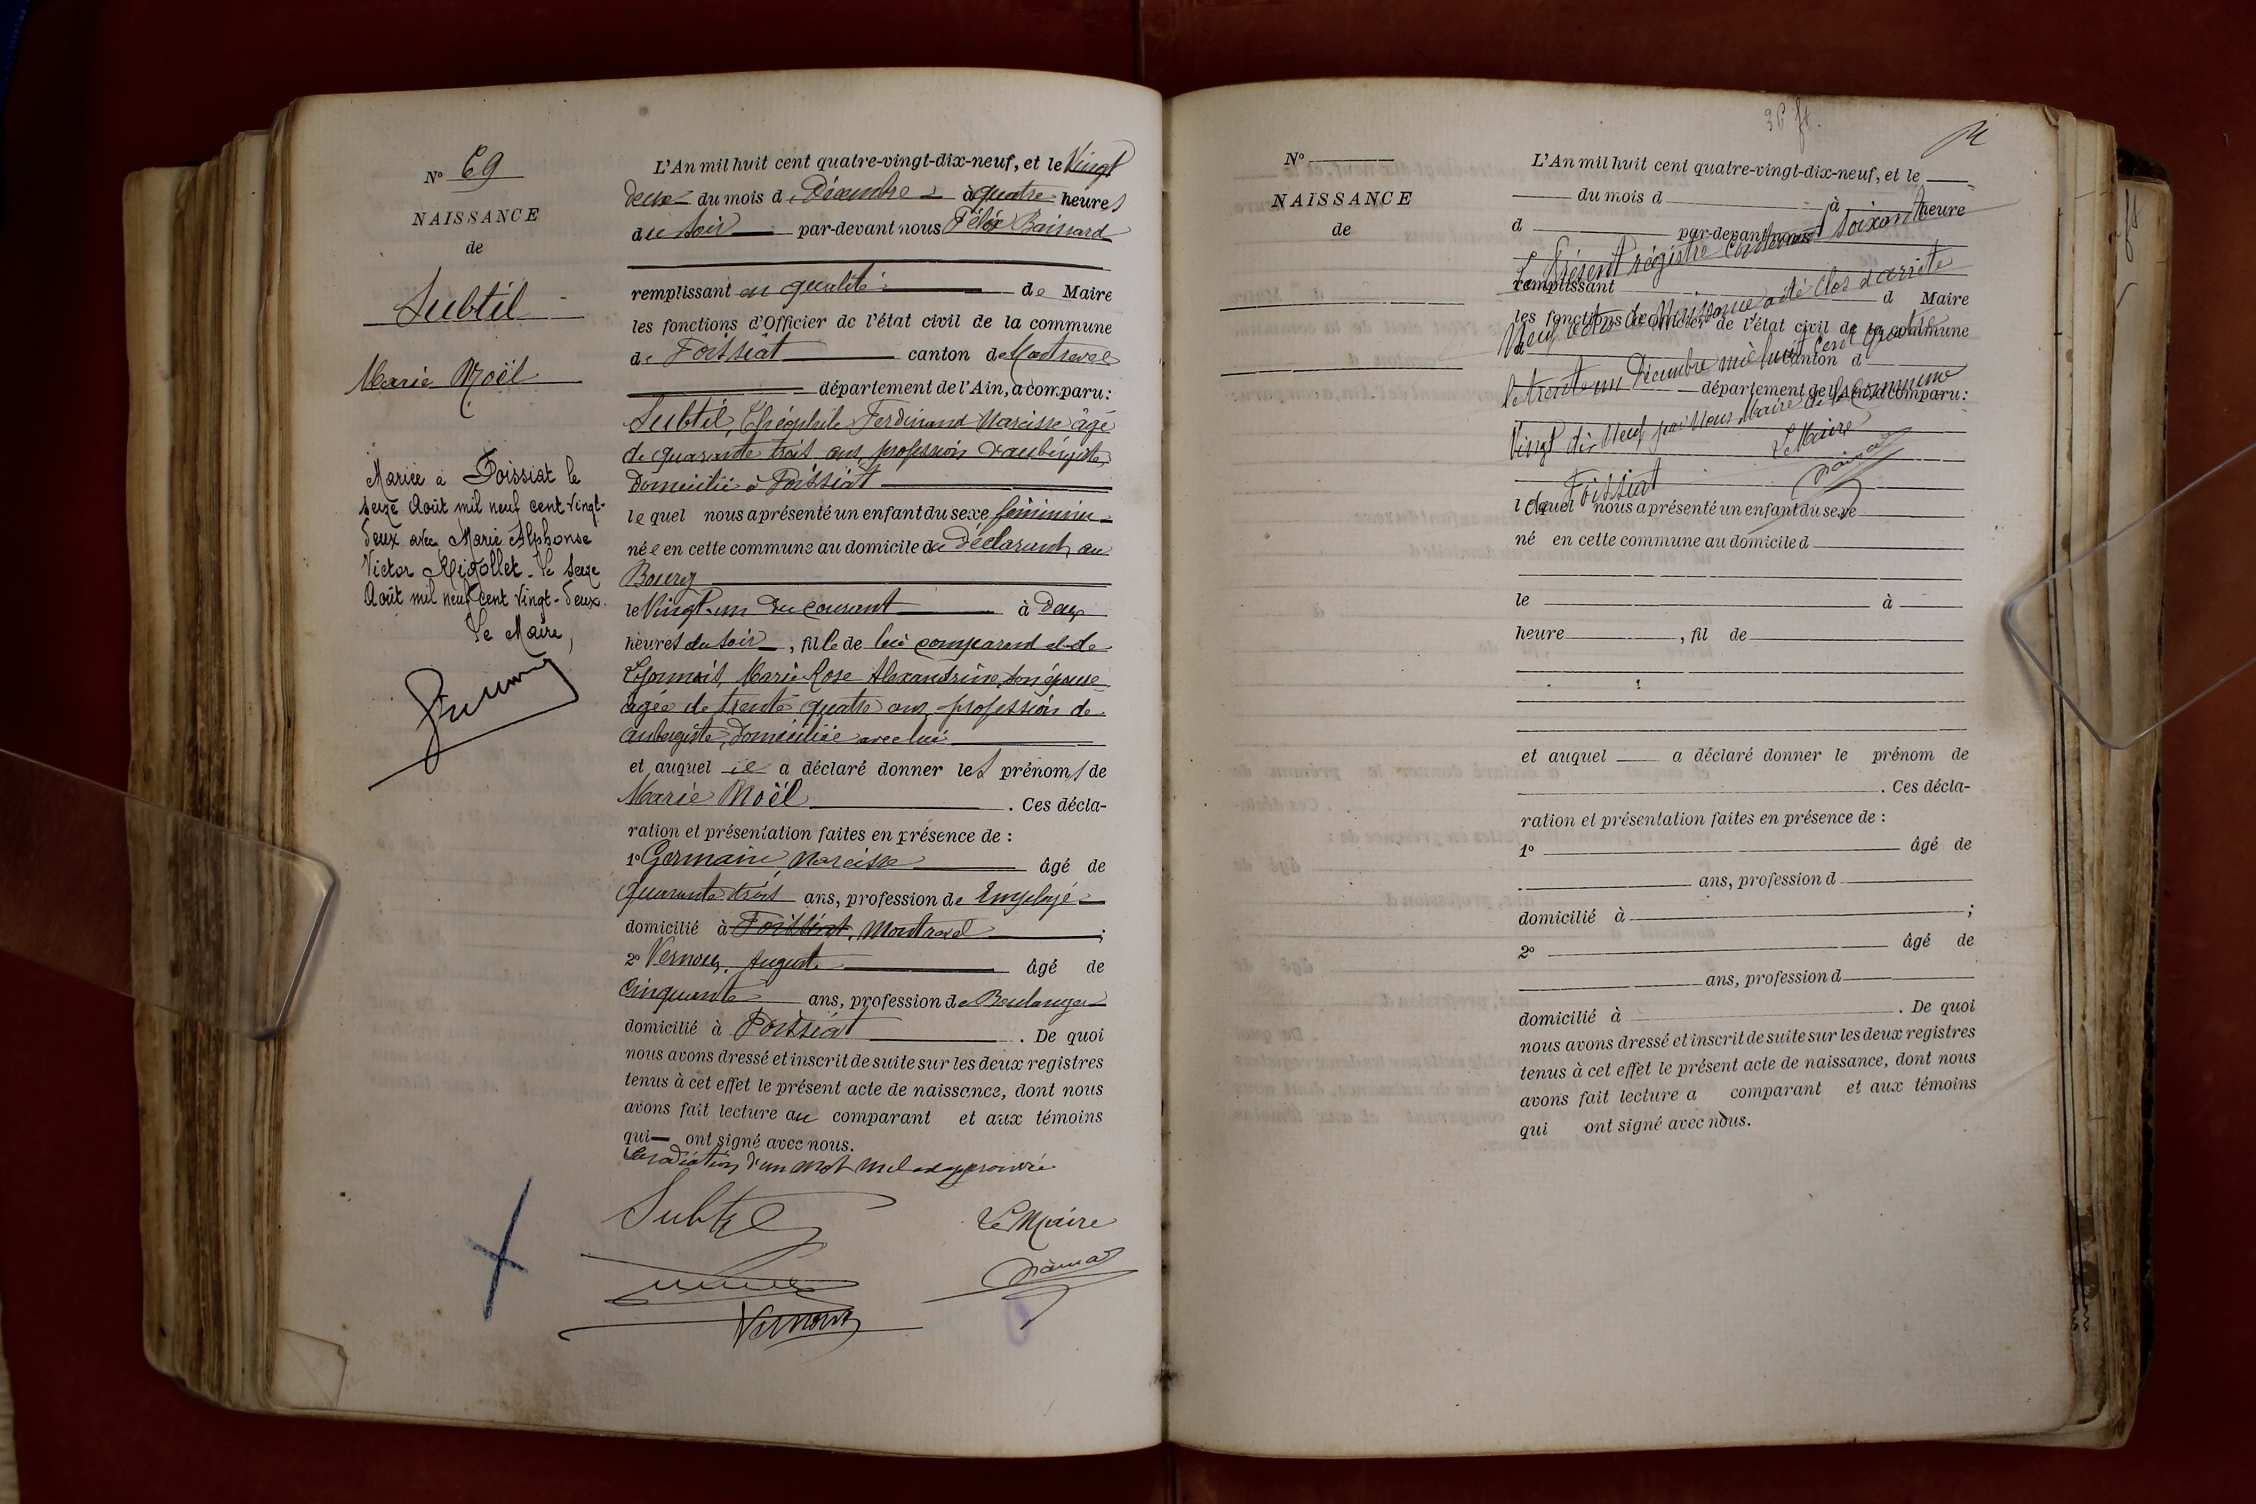 N° 69
NAISSANCE
de
Subtil
Marie Noël
Mariée à Foissiat le
seize Août mil neuf cent vingt-
deux avec Marie Alphonse
Victor Le seize
Août mil neuf cent vingt-deux.
Le Maire,
L'An mil huit cent quatre-vingt-dix-neuf, et le Vingt
deux du mois de Décembre à quatre heures
du soir par-devant nous Félix
remplissant en qualité de Maire
les fonctions d'Officier de l'état civil de la commune
de Foissiat canton de Montrevel
département de l'Ain, a comparu:
Subtil, Théophile Ferdinand Narcisse âgé
de quarante trois ans, profession d'aubergiste,
domicilié à Foissiat
lequel nous a présenté un enfant du sexe féminin
née en cette commune au domicile du déclarant, au
Bourg
le Vingt-un du courant à deux
heures du soir, fille de lui comparant et de
Marie Rose Alexandrine, son épouse
âgée de trente quatre ans, profession de
aubergiste, domiciliée avec lui
et auquel il a déclaré donner les prénoms de
Marie Noël . Ces décla-
ration et présentation faites en présence de :
1° Germain, Narcisse âgé de
quarante trois ans, profession de Employé
domicilié à Foissiat, Montrevel ;
2° Vernoux, Auguste âgé de
cinquante ans, profession de Boulanger
domicilié à Foissiat . De quoi
nous avons dressé et inscrit de suite sur les deux registres
tenus à cet effet le présent acte de naissance, dont nous
avons fait lecture au comparant et aux témoins
qui ont signé avec nous.
La radiation d'un mot nul est approuvée
Subtil
Le Maire
Vernoux
N°
NAISSANCE
de
L'An mil huit cent quatre-vingt-dix-neuf, et le
du mois d à heure
d par-devant nous
Le Présent régistre contenant soixante
remplissant d Maire
Neuf actes de Naissance a été clos et arrêté
les fonctions d'Officier de l'état civil de la commune
d canton d
le trente un Décembre mil huit cent quatre
département de l'Ain, a comparu:
Vingt dix Neuf par Nous Maire de la Commune
Le Maire
de Foissiat
lequel nous a présenté un enfant du sexe
né en cette commune au domicile d
le à
heure , fil de
et auquel a déclaré donner le prénom de
. Ces décla-
ration et présentation faites en présence de :
1° âgé de
ans, profession d
domicilié à ;
2° âgé de
ans, profession d
domicilié à . De quoi
nous avons dressé et inscrit de suite sur les deux registres
tenus à cet effet le présent acte de naissance, dont nous
avons fait lecture a comparant et aux témoins
qui ont signé avec nous.